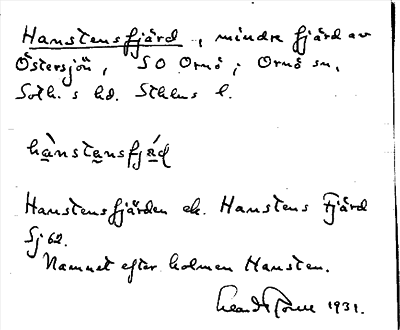 Hanstensfjärd, mindre fjärd av
Östersjön, SO Ornö; Ornö sn,
Soth.s hd. Sthlms l.
hànstansfjád
Hanstensfjärden ek. Hanstens Fjärd
Sj 62.
Namnet efter holmen Hansten.
1931.